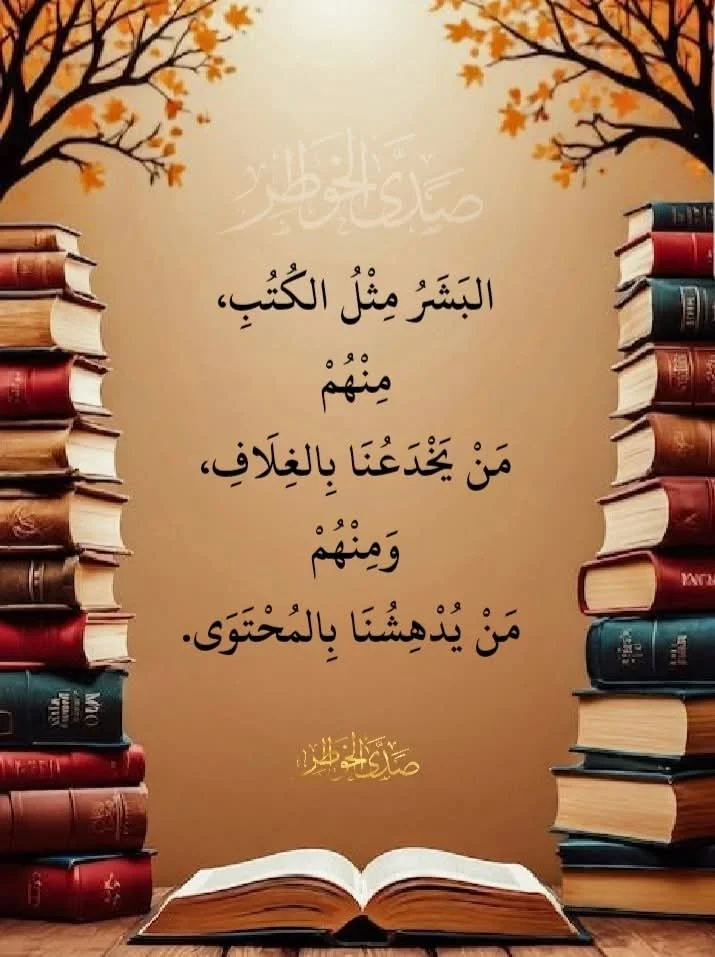 صَدَى الخَوَاطِر
البَشَرُ مِثْلُ الكُتُبِ،
مِنْهُمْ
مَنْ يَخْدَعُنَا بِالغِلَافِ،
وَمِنْهُمْ
مَنْ يُدْهِشُنَا بِالمُحْتَوَى.
صَدَى الخَوَاطِر